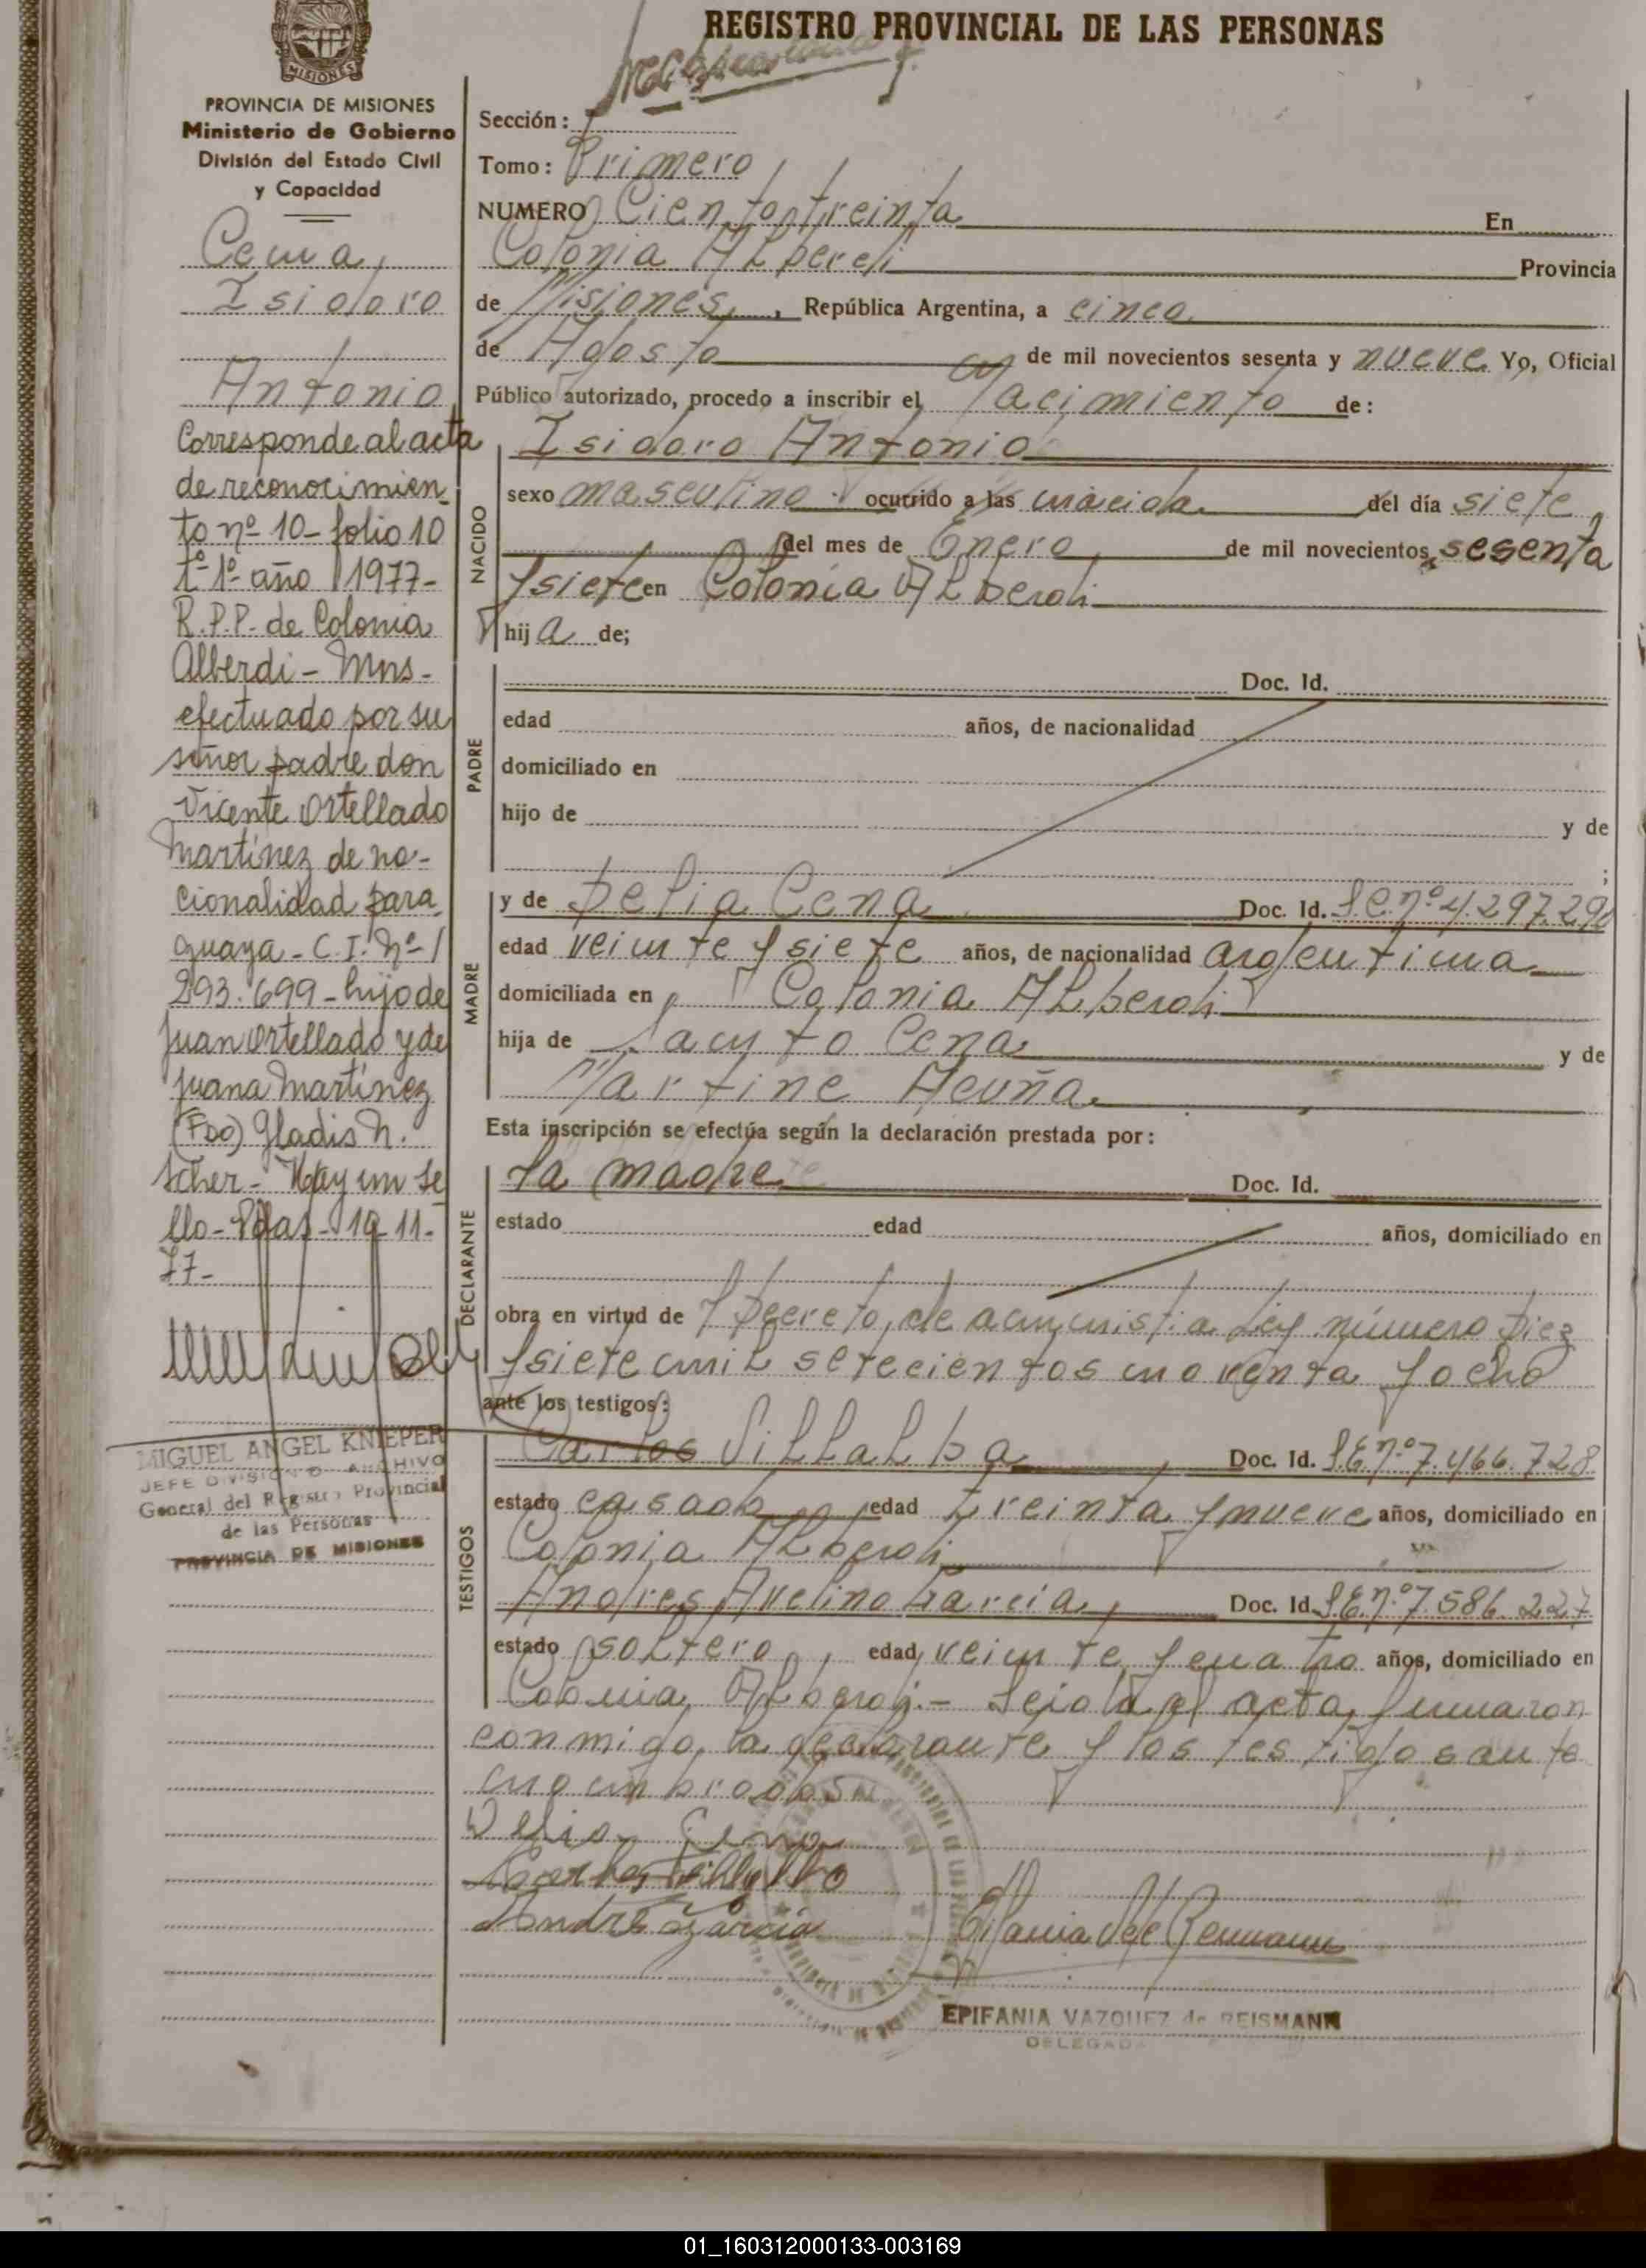 REGISTRO PROVINCIAL DE LAS PERSONAS
MISIONES
PROVINCIA DE MISIONES
Ministerio de Gobierno
División del Estado Civil
y Capacidad
Cena,
Isidoro
Antonio
Corresponde al acta
de reconocimien
to nº 10 - folio 10
tº 1º año 1977-
R.P.P. de Colonia
Alberdi - Mns -
efectuado por su
señor padre don
Vicente Ortellado
Martínez de na-
cionalidad para
guaya - C.I. Nº 1
293.699 - hijo de
Juan Ortellado y de
Juana Martínez
(Fdo) Gladis N.
Scher - Hay un se
llo - Pdas - 19-11-
77-
MIGUEL ANGEL KNIEPER
JEFE DIVISION ARCHIVO
General del Registro Provincial
de las Personas
PROVINCIA DE MISIONES
Sección:
Tomo: Primero
NUMERO Cientotreinta En
Colonia ALberdi Provincia
de Misiones, República Argentina, a cinco
de Agosto de mil novecientos sesenta y nueve Yo, Oficial
Público autorizado, procedo a inscribir el Nacimiento de:
NACIDO
Isidoro Antonio
sexo masculino ocurrido a las nacida del día siete
del mes de Enero de mil novecientos sesenta
y siete en Colonia ALberdi
hija de;
PADRE
Doc. Id.
edad años, de nacionalidad
domiciliado en
hijo de y de
;
MADRE
y de Delia Cena Doc. Id. L.C. nº 4.297.290
edad veinte y siete años, de nacionalidad argentina
domiciliada en Colonia ALberdi
hija de Jacynto Cena y de
Martine Acuña
Esta inscripción se efectúa según la declaración prestada por:
DECLARANTE
La madre Doc. Id.
estado edad años, domiciliado en
obra en virtud de Decreto, de amnistia Ley número Diez
y siete mil setecientos noventa y ocho
ante los testigos:
TESTIGOS
Carlos ViLLaLba Doc. Id. L.E. nº 7.466.728
estado casado edad treinta y nueve años, domiciliado en
Colonia ALberdi
Andres Avelino Garcia, Doc. Id. L.E. nº 7.586.227
estado soltero, edad veinte y cuatro años, domiciliado en
Colonia ALberdi.- Leida el acta, firmaron
conmigo, la declarante y los testigos ante
nombrados
Delia Cena
Carlos Villalba
Andres Garcia
EPIFANIA VAZQUEZ de REISMANN
DELEGADA
01_160312000133-003169